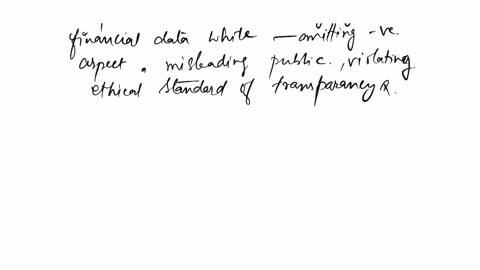 financial data while omitting -ve.
aspect, misleading public, violating
ethical standard of transparancy &.